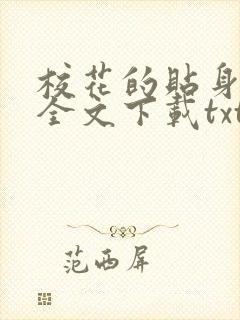 校花的贴身
全文下载txt
范西屏